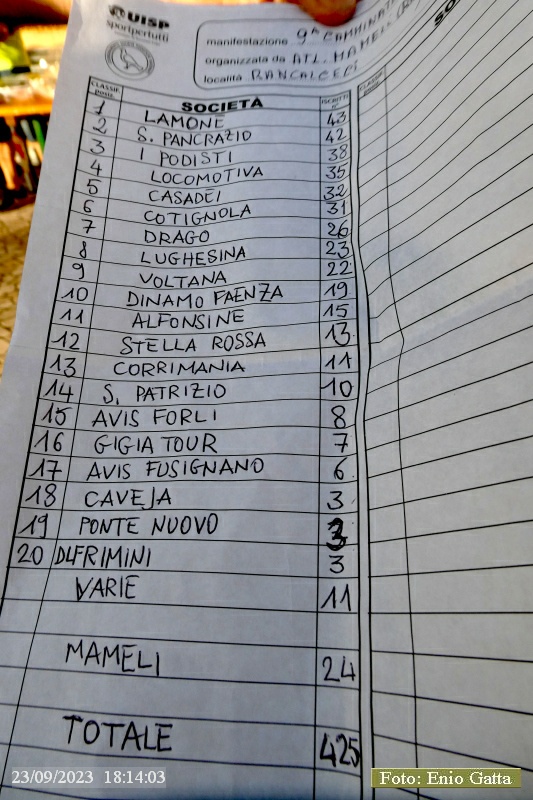 UISP
sportpertutti
manifestazione 9ª CAMMINATA
organizzata da ATL. MAMELI (RA
località RANCALCECI
CLASSIF. SOCIETÀ ISCRITTI CLASSIF. SO
1 LAMONE 43
2 S. PANCRAZIO 42
3 I PODISTI 38
4 LOCOMOTIVA 35
5 CASADEI 32
6 COTIGNOLA 31
7 DRAGO 26
8 LUGHESINA 23
9 VOLTANA 22
10 DINAMO FAENZA 19
11 ALFONSINE 15
12 STELLA ROSSA 13
13 CORRIMANIA 11
14 S. PATRIZIO 10
15 AVIS FORLI 8
16 GIGIA TOUR 7
17 AVIS FUSIGNANO 6
18 CAVEJA 3
19 PONTE NUOVO 3
20 DLFRIMINI 3
VARIE 11
MAMELI 24
TOTALE 425
23/09/2023 18:14:03
Foto: Enio Gatta